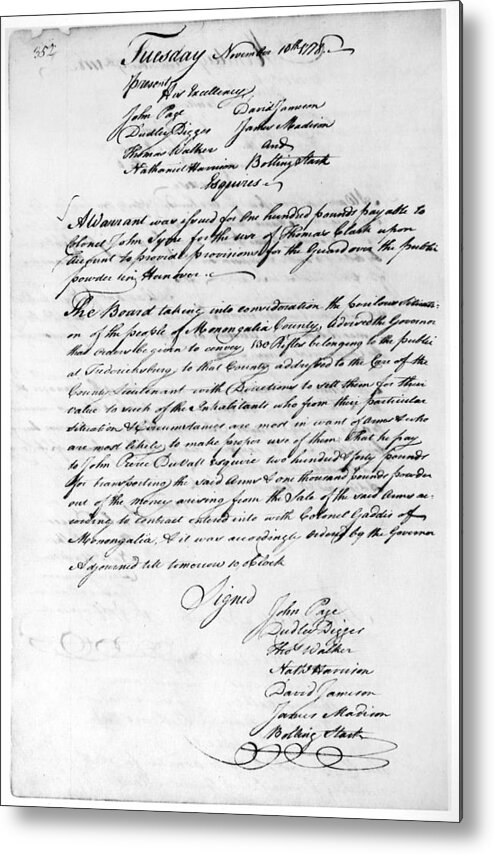 352
Tuesday November 10th 1778
Present
His Excellency
John Page David Jameson
Dudley Digges James Madison
Thomas Walker and
Nathaniel Harrison Bolling Stark
Esquires
A Warrant was issued for One hundred pounds payable to
Colonel John Syme for the use of Thomas Clark upon
Account to provide provisions for the Guard over the public
powder in Hanover.
The Board taking into consideration the perilous Situati-
on of the people of Monongalia County, Advised the Governor
that orders be given to convey 130 Rifles belonging to the public
at Fredericksburg to that County addressed to the Care of the
County Lieutenant with Directions to sell them for their
value to such of the Inhabitants who from their particular
situation & Circumstances are most in want of Arms & who
are most likely to make proper use of them. That he pay
to John Pierce Duvall Esquire two hundred & forty pounds
for transporting the said Arms & one thousand pounds powder
out of the Money arising from the Sale of the said Arms ac-
cording to Contract entered into with Colonel Gaddis of
Monongalia, & it was accordingly Ordered by the Governor
Adjourned till tomorrow 10 oClock
Signed
John Page
Dudley Digges
Thos. Walker
Nathl. Harrison
David Jameson
James Madison
Bolling Stark